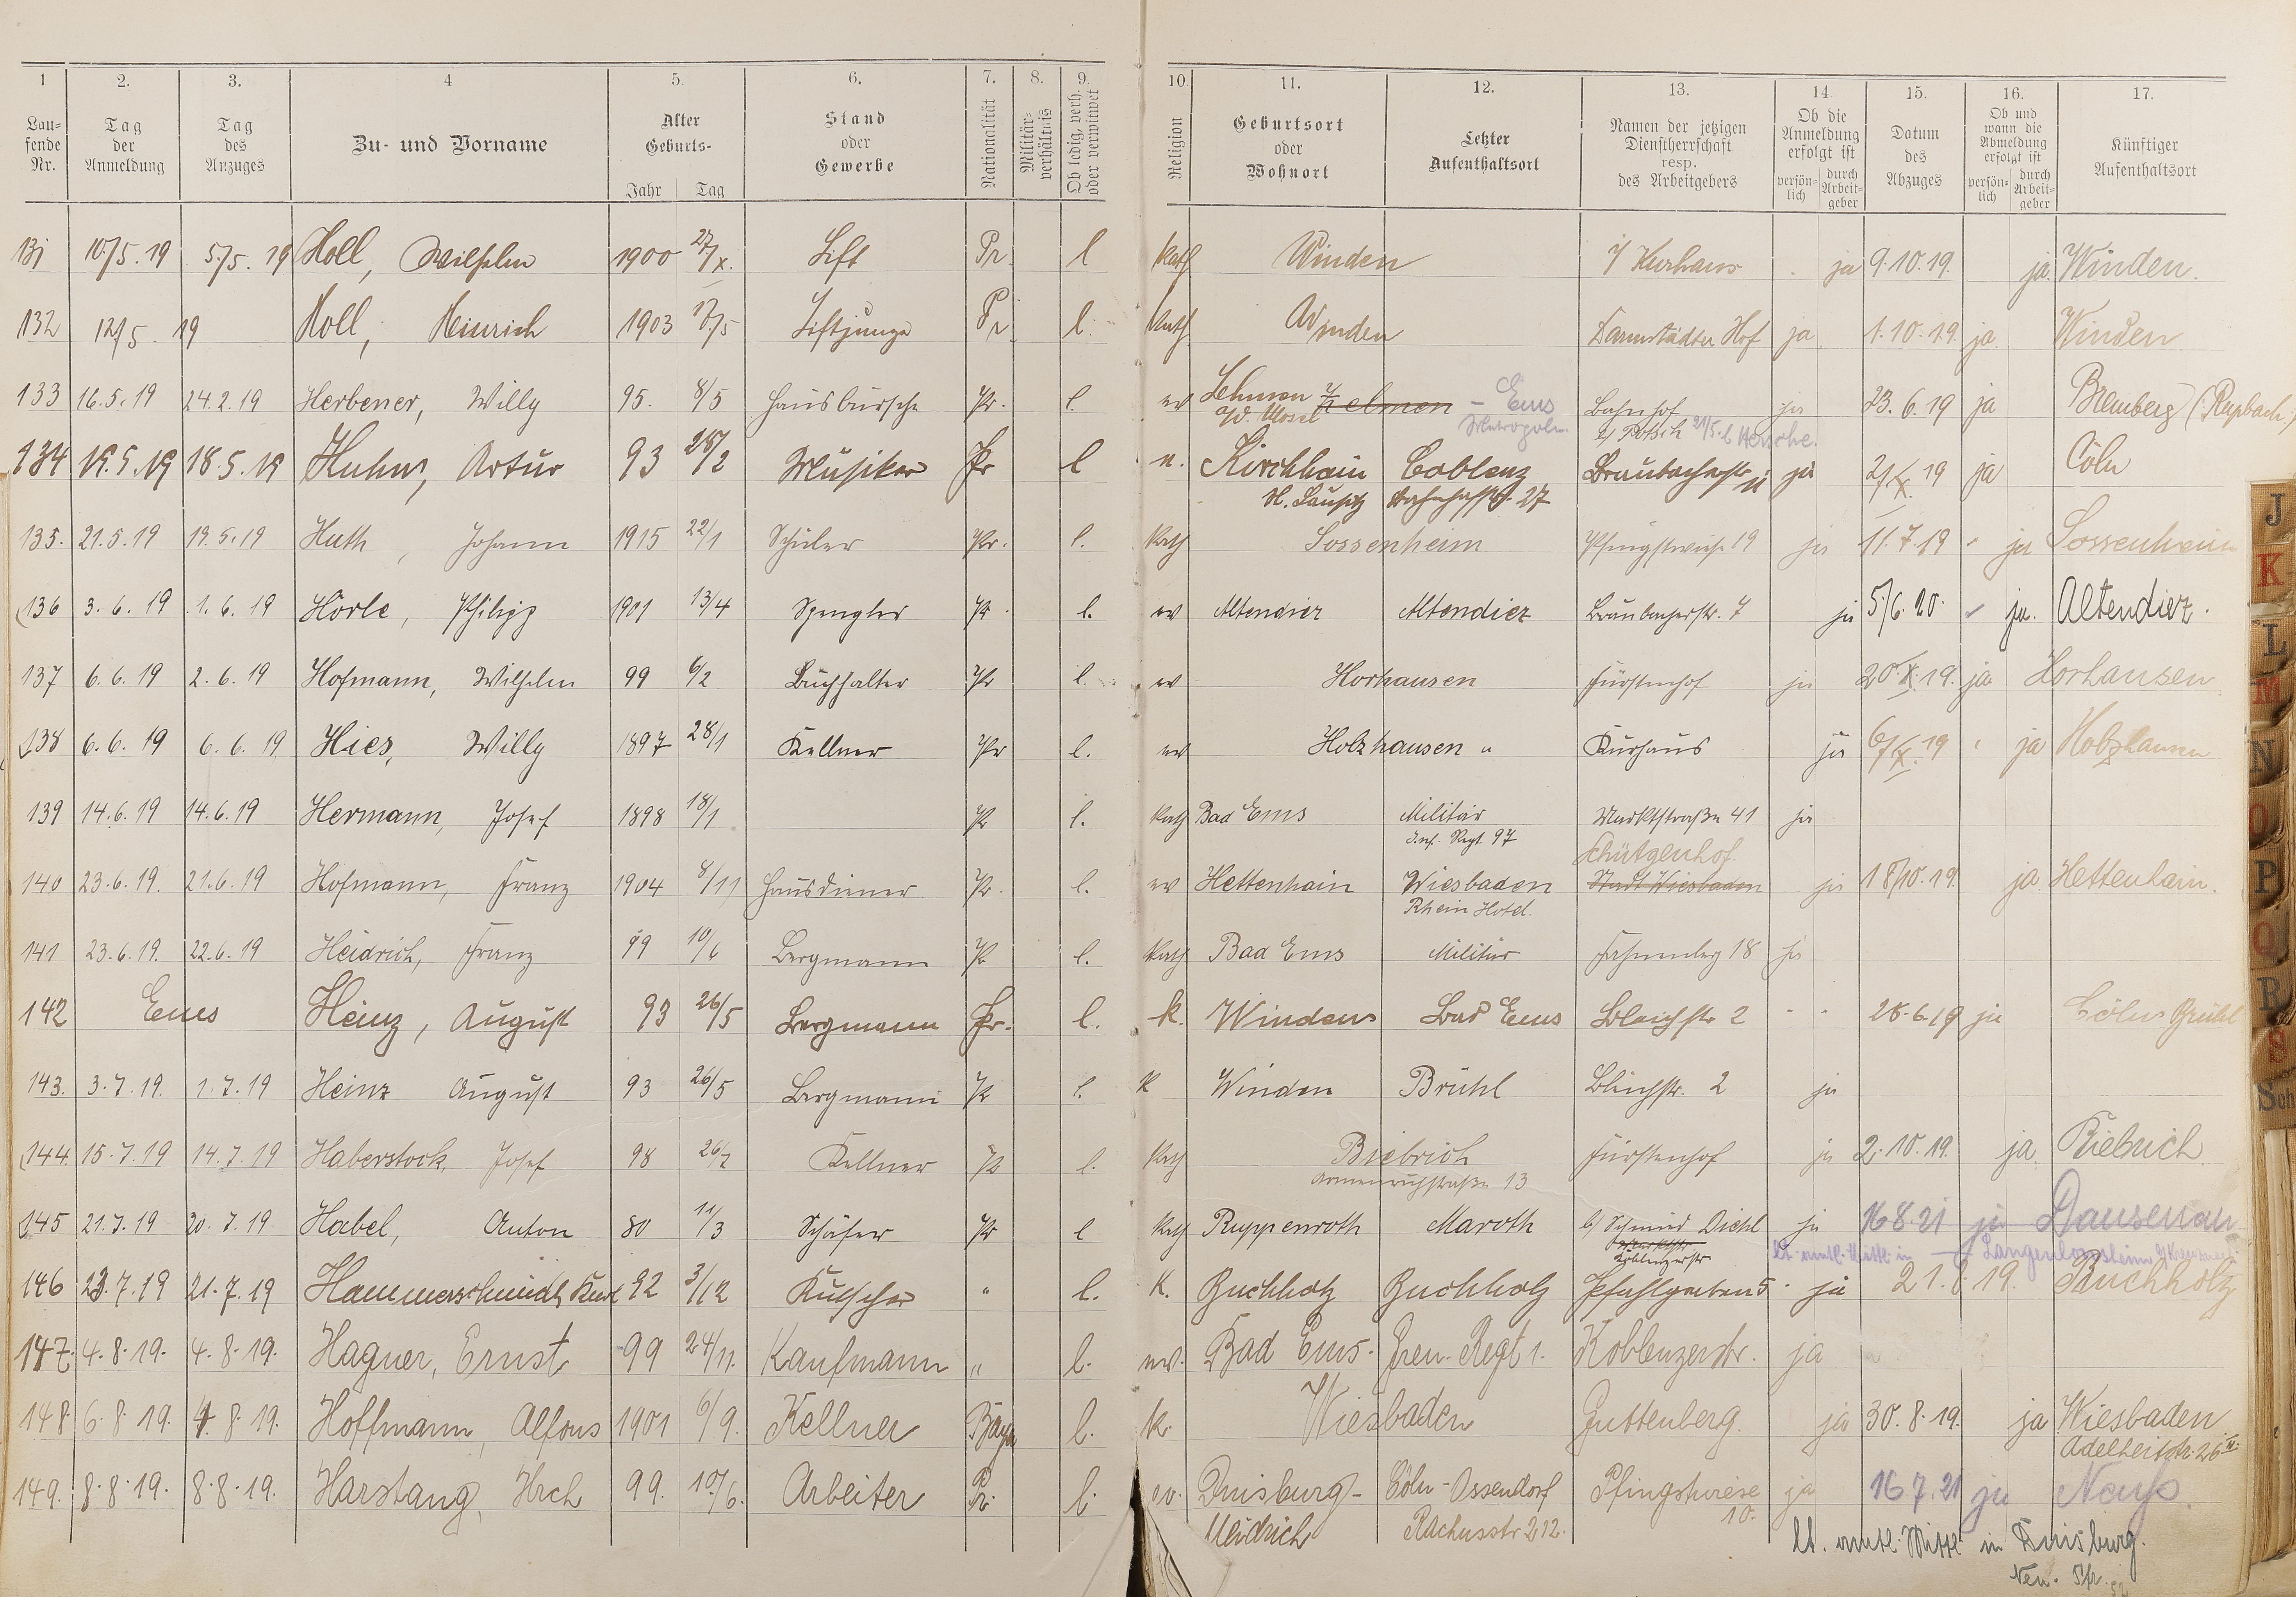 1 2. 3. 4 5. 6. 7. 8. 9. 10. 11. 12. 13. 14. 15. 16. 17.
Lau-
fende
Nr.
Tag
der
Anmeldung
Tag
des
Anzuges
Zu- und Vorname
Alter
Geburts-
Jahr Tag
Stand
oder
Gewerbe
Nationalität
Militär-
verhältnis
Ob ledig, verh.
oder verwitwet
Religion
Geburtsort
oder
Wohnort
Letzter
Aufenthaltsort
Namen der jetzigen
Dienstherrschaft
resp.
des Arbeitgebers
Ob die
Anmeldung
erfolgt ist
persön-
lich
durch
Arbeit-
geber
Datum
des
Abzuges
Ob und
wann die
Abmeldung
erfolgt ist
persön-
lich
durch
Arbeit-
geber
Künftiger
Aufenthaltsort
131 10/5. 19 5/5. 19 Holl, Wilhelm 1900 27/X. Lift Pr. l kath Winden i/ Kurhaus ja 9.10.19. ja. Winden.
132 12/5. 19 Holl, Heinrich 1903 17/5 Liftjunge Pr l. kath Winden Darmstädter Hof ja 1.10.19. ja Winden
133 16.5.19 24.2.19 Herbener, Willy 95. 8/5 Hausbursche Pr. l. ev Lehmen - Ems Bahnhof ja 23.6.19 ja Bremberg (Rupbach)
a/d. Mosel Metropole 21/5. b
134 19.5.19 18.5.19 Huhn, Artur 93 28/2 Musiker Pr l Kirchhain Coblenz Braubacherstr ja 21/X. 19 ja Cöln
N. Lausitz Bahnhofstr. 27
135. 21.5.19 19.5.19 Huth, Johann 1915 22/1 Schüler Pr. l. kath Sossenheim Pfingstwiese 19 ja 11.7.19 ja Sossenheim
136 3.6.19 1.6.19 Hörle, Philipp 1901 13/4 Spengler Pr. l. ev Altendiez Altendiez Braubacherstr. 7 ja 5/6.20. ja. Altendiez.
137 6.6.19 2.6.19 Hofmann, Wilhelm 99 6/2 Buchhalter Pr l. ev Horhausen Fürstenhof ja 20.X.19. ja Horhausen
138 6.6.19 6.6.19 Hies, Willy 1897 28/1 Kellner Pr l. ev Holzhausen Kurhaus ja 6/X.19 ja Holzhausen
139 14.6.19 14.6.19 Hermann, Josef 1898 18/1 Pr l. kath Bad Ems Militär Marktstraße 41 ja
Inf. Regt 97
Schützenhof.
140 23.6.19. 21.6.19 Hofmann, Franz 1904 8/11 Hausdiener Pr. l. ev Hettenhain Wiesbaden Stadt Wiesbaden ja 18/10.19. ja. Hettenhain.
Rhein Hotel.
141 23.6.19. 22.6.19 Heidrich, Franz 99 10/6 Bergmann Pr l. kath Bad Ems Militär 18 ja
142 Ems Heinz, August 93 26/5 Bergmann Pr. l. k. Winden Bad Ems Bleichstr 2 28.6.19 ja Cöln Brühl
143. 3.7.19. 1.7.19 Heinz August 93 26/5 Bergmann Pr l. k Winden Brühl Bleichstr. 2 ja
144. 15.7.19 14.7.19 Haberstock, Josef 98 26/2 Kellner Pr l. kath Biebrich Fürstenhof ja 2.10.19. ja. Biebrich
Armenruhstraße 13
145 21.7.19 20.7.19 Habel, Anton 80 11/3 Schäfer Pr l kath Ruppenroth Maroth b/ Schmied Diehl ja 16.8.21 ja Dausenau
Koblenzerstr lt. amtl. Mittl. in Langenlonsheim
146 23.7.19 21.7.19 Hammerschmidt, Kurt 92 3/12 Kutscher " l. K. Buchholz Buchholz Pfahlgraben 5 ja 21.8.19. Buchholz
147. 4.8.19. 4.8.19. Hagner, Ernst 99 24/11. Kaufmann " l. ev. Bad Ems. Gren. Regt 1. Koblenzerstr. ja
148. 6.8.19. 4.8.19. Hoffmann, Alfons 1901 6/9. Kellner Bayr l. k. Wiesbaden Guttenberg. ja 30.8.19. ja Wiesbaden
Adelheitstr. 26
149. 8.8.19. 8.8.19. Harstang, Hrch 99. 10/6. Arbeiter Pr. l. ev. Duisburg- Cöln-Ossendorf Pfingstwiese ja 16.7.21 ja
Meidrich 212. 10.
lt. amtl. Mittl in Duisburg.
J
K
L
M
N
O
P
Q
R
S
Sch